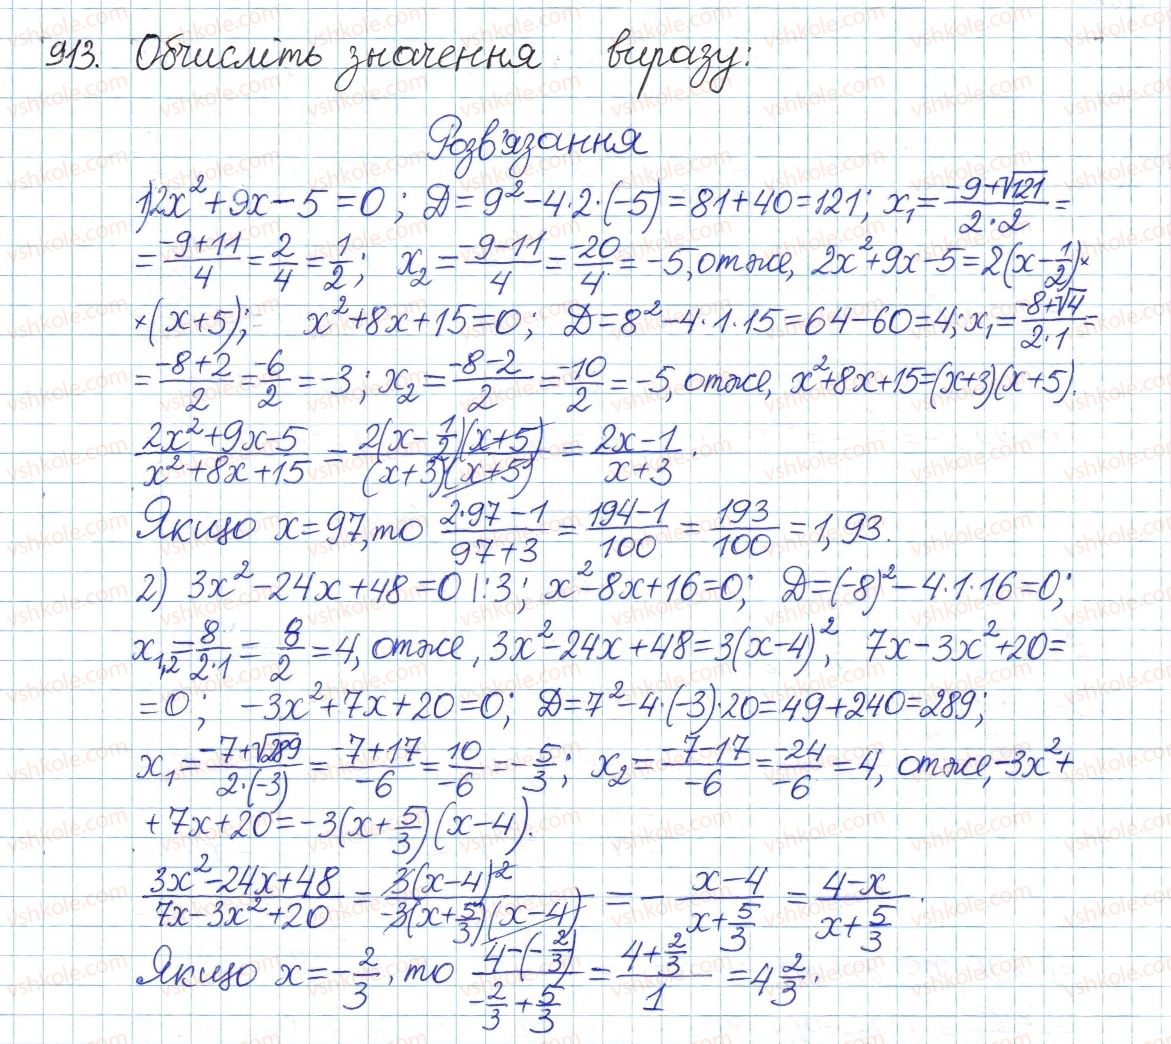 913. Обчисліть значення виразу:
Розв'язання
1) 2x² + 9x − 5 = 0; Д = 9² − 4·2·(−5) = 81 + 40 = 121; x₁ = (−9+√121)/(2·2) =
= (−9+11)/4 = 2/4 = 1/2; x₂ = (−9−11)/4 = −20/4 = −5, отже, 2x²+9x−5 = 2(x−1/2)×
×(x+5); x²+8x+15=0; Д = 8²−4·1·15 = 64−60 = 4; x₁ = (−8+√4)/(2·1) =
= (−8+2)/2 = −6/2 = −3; x₂ = (−8−2)/2 = −10/2 = −5, отже, x²+8x+15=(x+3)(x+5).
(2x²+9x−5)/(x²+8x+15) = 2(x−1/2)(x+5)/((x+3)(x+5)) = (2x−1)/(x+3).
Якщо x=97, то (2·97−1)/(97+3) = (194−1)/100 = 193/100 = 1,93.
2) 3x²−24x+48=0 |:3; x²−8x+16=0; Д=(−8)²−4·1·16=0;
x₁,₂ = 8/(2·1) = 8/2 = 4, отже, 3x²−24x+48=3(x−4)², 7x−3x²+20=
=0; −3x²+7x+20=0; Д=7²−4·(−3)·20=49+240=289;
x₁ = (−7+√289)/(2·(−3)) = (−7+17)/−6 = 10/−6 = −5/3; x₂ = (−7−17)/−6 = −24/−6 = 4, отже, −3x²+
+7x+20=−3(x+5/3)(x−4).
(3x²−24x+48)/(7x−3x²+20) = 3(x−4)²/(−3(x+5/3)(x−4)) = −(x−4)/(x+5/3) = (4−x)/(x+5/3).
Якщо x=−2/3, то (4−(−2/3))/(−2/3+5/3) = (4+2/3)/1 = 4 2/3.